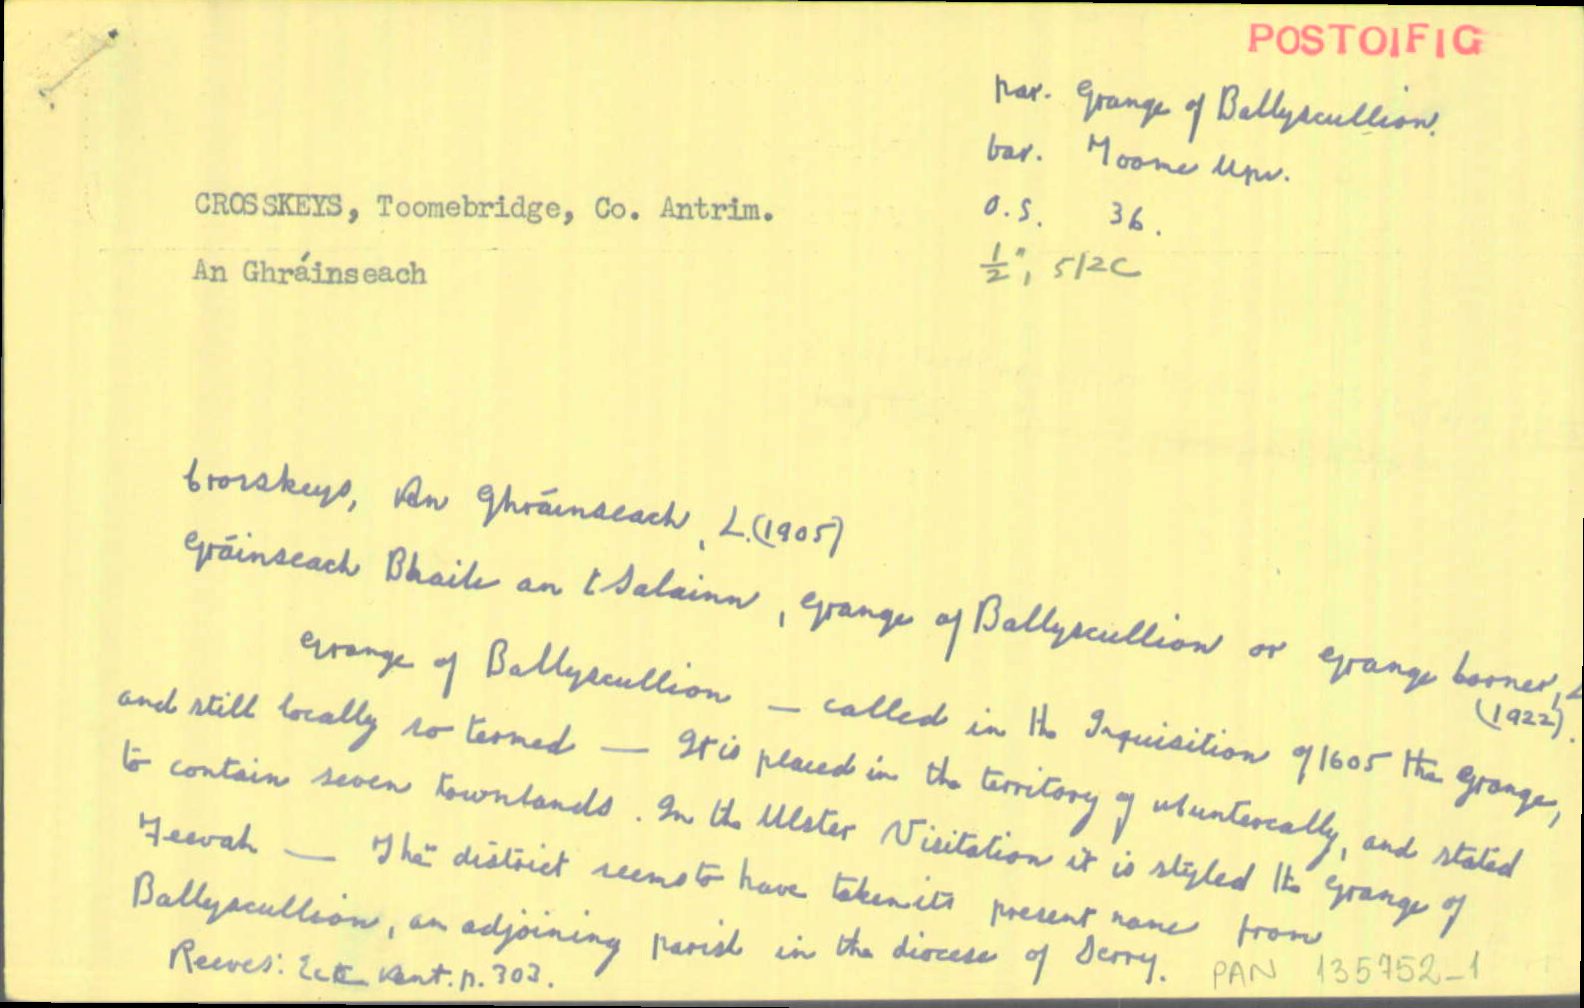 POSTOIFIG
par. Grange of Ballyscullion.
bar. Toome Upr.
O.S. 36.
½", 5/2C
CROSSKEYS, Toomebridge, Co. Antrim.
An Ghráinseach
Crosskeys, An Ghráinseach, L. (1905)
Gráinseach Bhaile an tSalainn, Grange of Ballyscullion or Grange Corner, L
(1922).
Grange of Ballyscullion — called in the Inquisition of 1605 the Grange,
and still locally so termed — It is placed in the territory of Muntercally, and stated
to contain seven townlands. In the Ulster Visitation it is styled the Grange of
Feevah — The district seems to have taken its present name from
Ballyscullion, an adjoining parish in the diocese of Derry.
Reeves: Eccl. Ant. p. 303.
PAN 135752-1